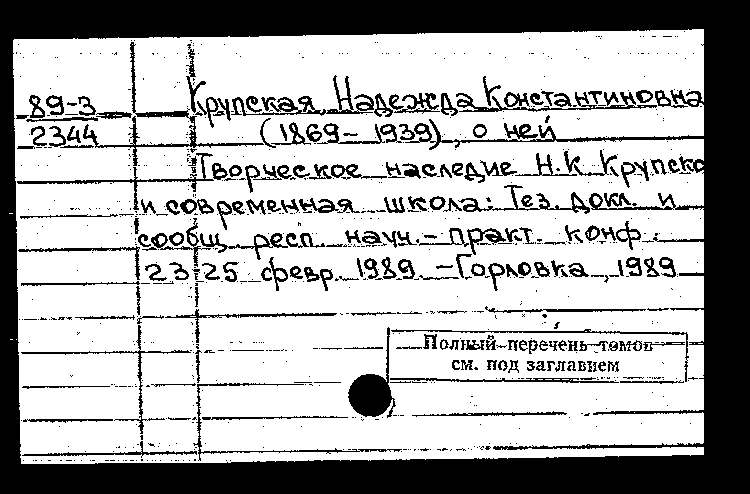 89-3
2344
Крупская, Надежда Константиновна
(1869 - 1939), о ней
Творческое наследие Н.К Крупско
и современная школа: Тез. докл. и
сообщ. респ. науч. - практ. конф.
23-25 февр. 1989. - Горловка, 1989
Полный перечень томов
см. под заглавием